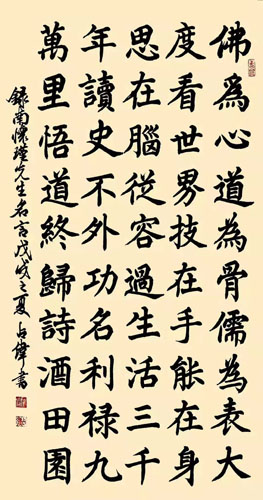 佛為心道為骨儒為表大
度看世界技在手能在身
思在腦從容過生活三千
年讀史不外功名利祿九
萬里悟道終歸詩酒田園
錄南懷瑾先生名言戊戌之夏占偉書